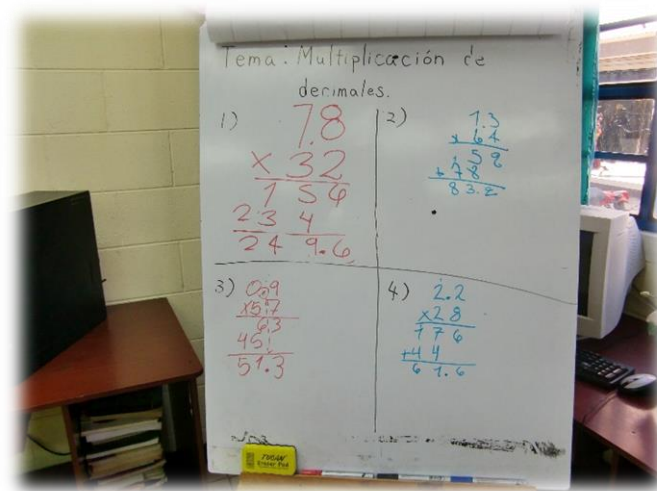 Tema: Multiplicación de
decimales.
1)
7.8
x 32
1 5 6
23 4
24 9.6
2)
1.3
x 64
5 2
+ 7 8
8 3.2
3)
0.9
x57
63
45
51.3
4)
2.2
x28
1 7 6
+44
6 1.6